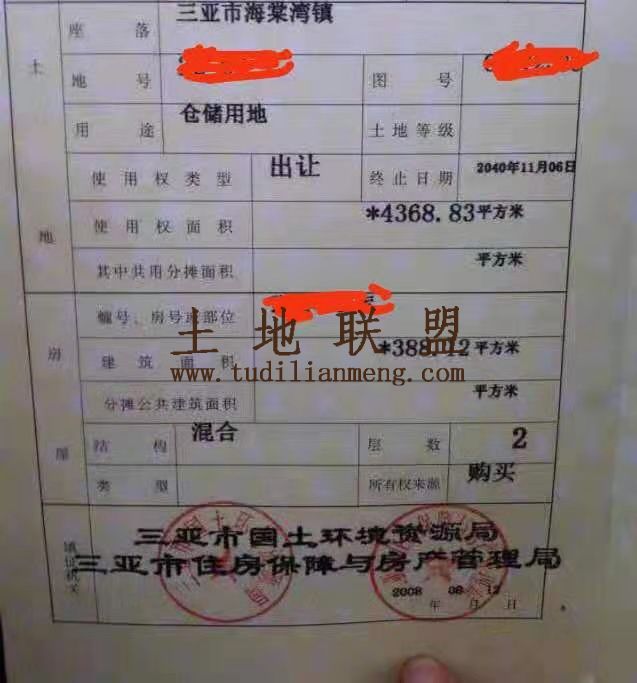 座落 三亚市海棠湾镇
土
地号 图号
用途 仓储用地 土地等级
使用权类型 出让 终止日期 2040年11月06日
使用权面积 *4368.83平方米
地
其中共用分摊面积 平方米
幢号、房号或部位
土地联盟
房
建筑面积 *388.12平方米
www.tudilianmeng.com
分摊公共建筑面积 平方米
结构 混合 层数 2
屋
类型 所有权来源 购买
三亚市国土环境资源局
填发机关
三亚市住房保障与房产管理局
2008年08月12日